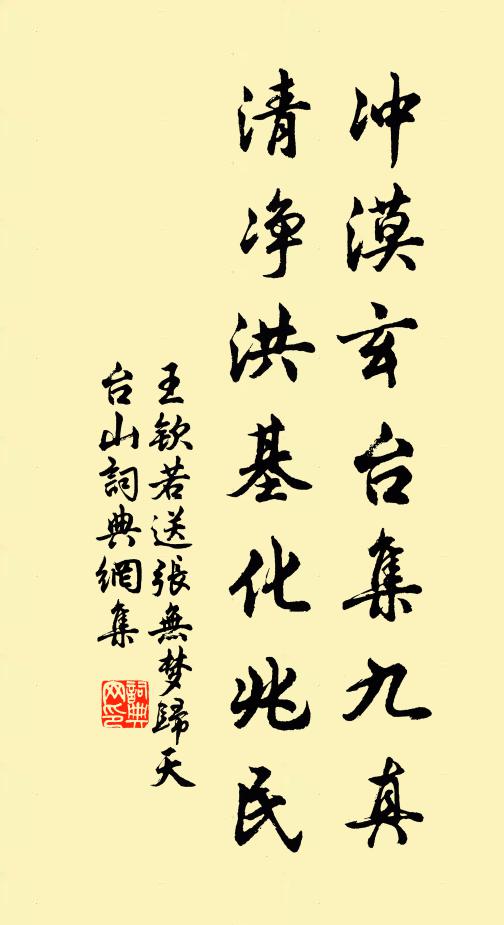 冲漠玄台集九真
清净洪基化兆民
王钦若送張無梦歸天
台山詞典網集
詞典網印